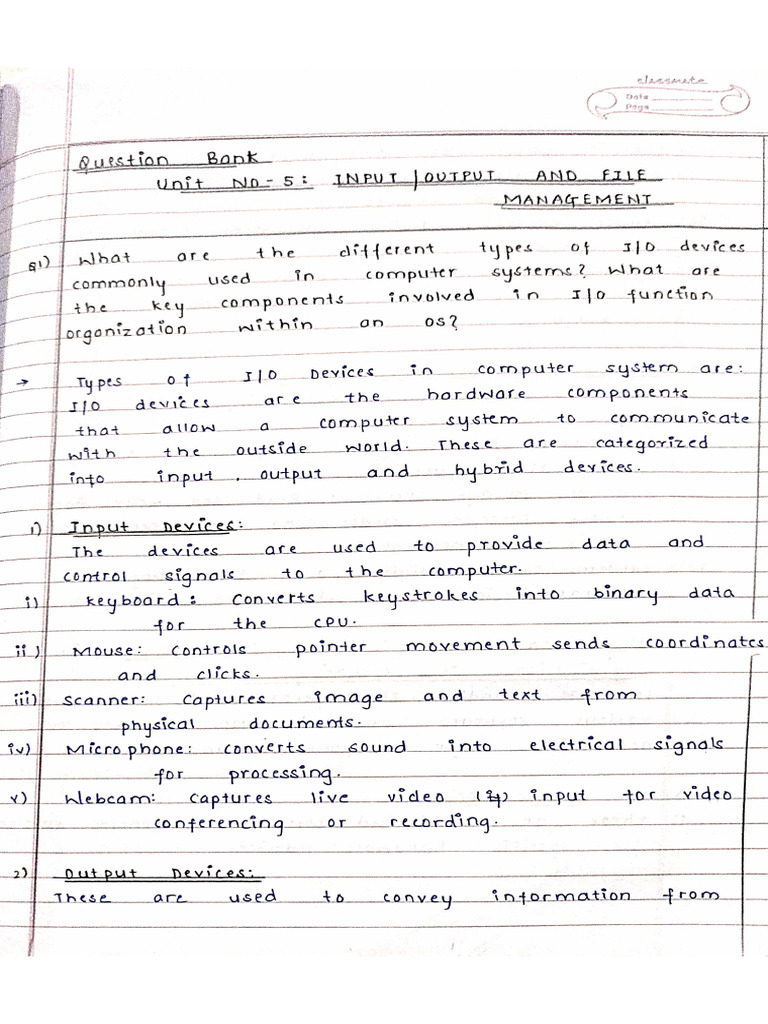 classmate
Date
Page
Question Bank
Unit No-5: INPUT/OUTPUT AND FILE
MANAGEMENT
Q1) What are the different types of I/O devices
commonly used in computer systems? What are
the key components involved in I/O function
organization within an OS?
→ Types of I/O Devices in computer system are:
I/O devices are the hardware components
that allow a computer system to communicate
with the outside world. These are categorized
into input, output and hybrid devices.
1) Input Devices:
The devices are used to provide data and
control signals to the computer.
i) Keyboard: Converts keystrokes into binary data
for the CPU.
ii) Mouse: Controls pointer movement sends coordinates
and clicks.
iii) Scanner: Captures image and text from
physical documents.
iv) Microphone: converts sound into electrical signals
for processing.
v) Webcam: Captures live video input for video
conferencing or recording.
2) Output Devices:
These are used to convey information from